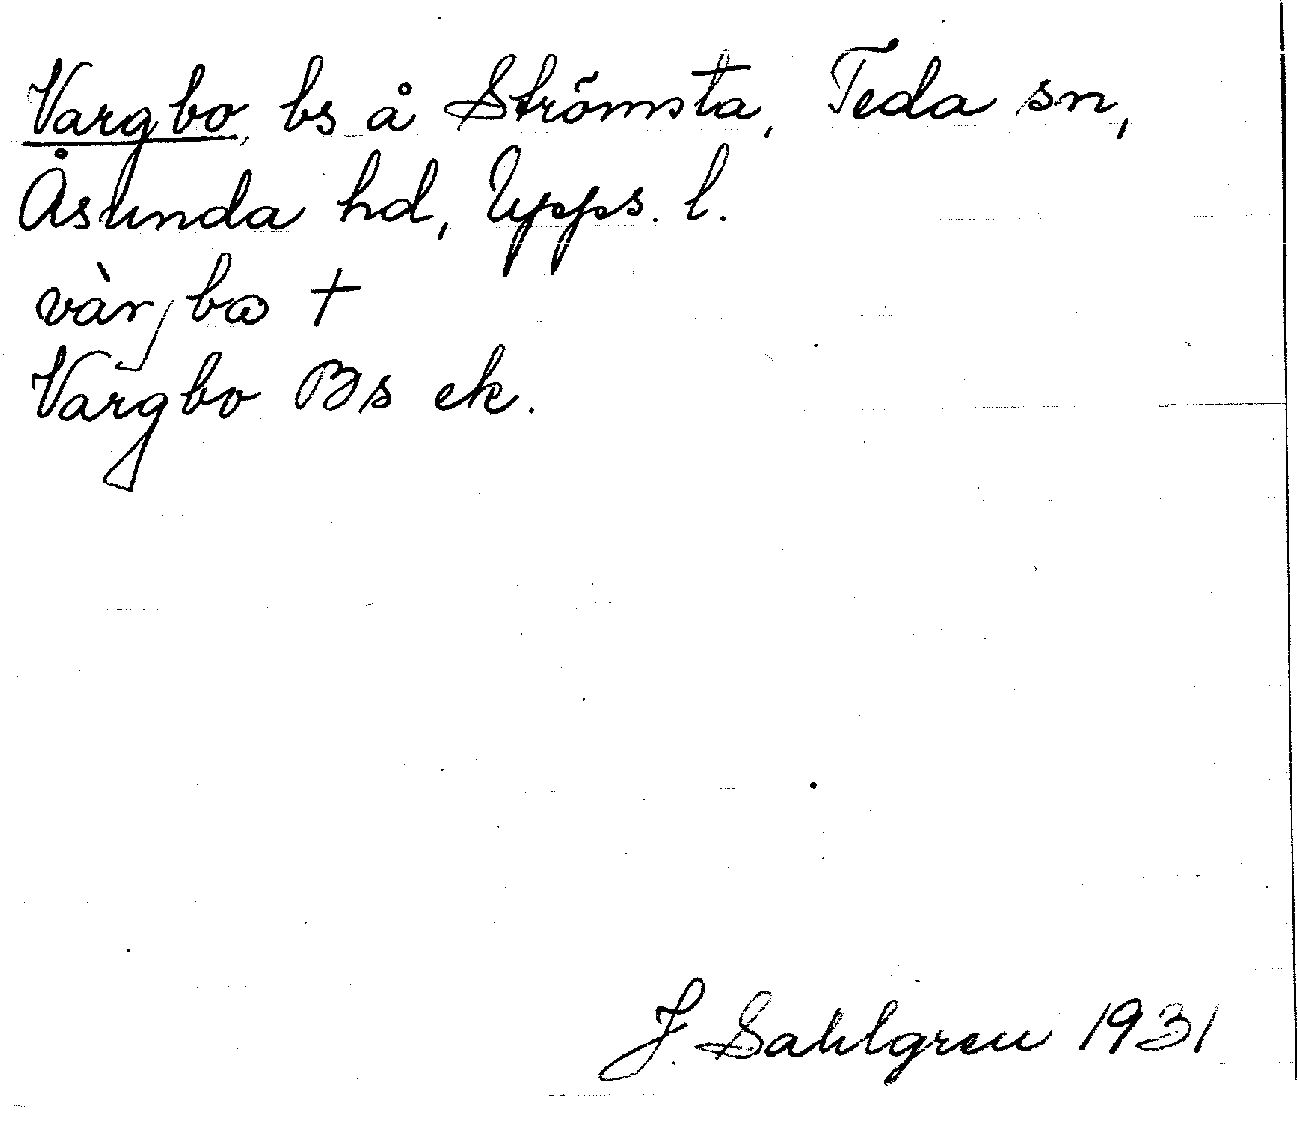 Vargbo, bs å Strömsta, Teda sn,
Åsunda hd, Upps. l.
vàrjbω +
Vargbo Bs ek.
J. Sahlgren 1931